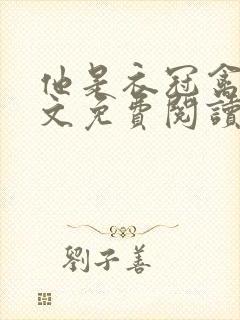 他是衣冠禽
文免費閱讀
劉子善